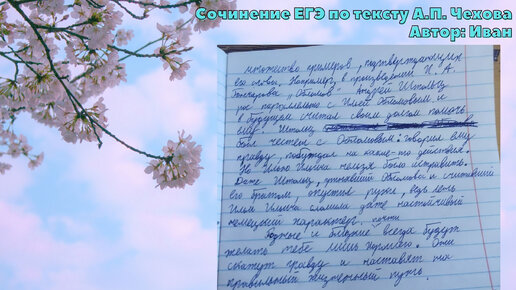 Сочинение ЕГЭ по тексту А.П. Чехова
Автор: Иван
множество примеров, подтверждающих
его слова. Например, в произведении И. А.
Гончарова "Обломов" Андрей Штольц
рос параллельно с Ильёй Обломовым и
в будущем считал своим долгом помочь
ему. Штольц
был честен с Обломовым: говорил ему
правду, побуждал на какие-то действия.
Но Илью Ильича нельзя было исправить.
Даже Штольц, унявший Обломова и считавший
его братом, опустил руки, ведь лень
Ильи Ильича сломила даже настойчивый
немецкий характер.
почти
Родные и близкие всегда будут
желать тебе лишь хорошего. Они
скажут правду и наставят на
правильный жизненный путь.